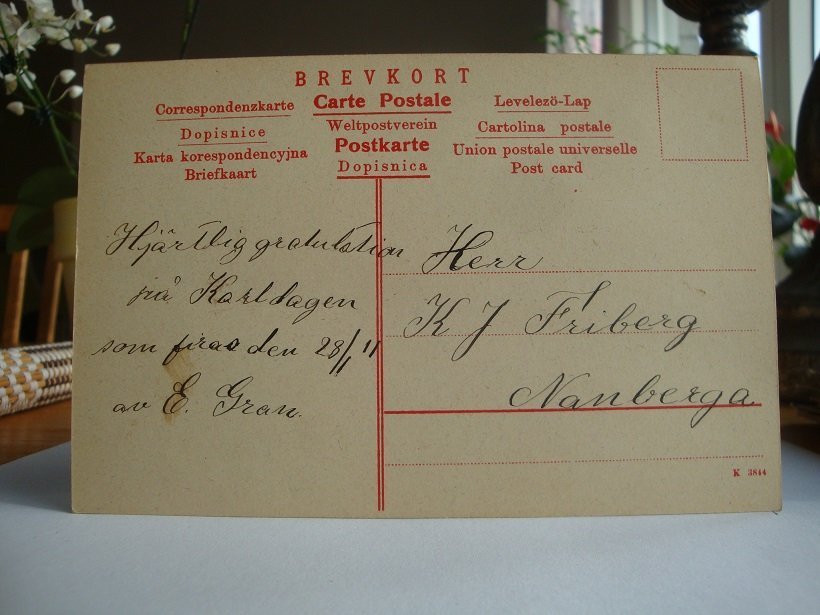 BREVKORT
Correspondenzkarte Carte Postale Levelezö-Lap
Dopisnice Weltpostverein Cartolina postale
Karta korespondencyjna Postkarte Union postale universelle
Briefkaart Dopisnica Post card
Hjärtlig gratulation
på Karldagen
som firas den 28/1 11
av E. Gran.
Herr
K J Friberg
Nanberga
K 3844